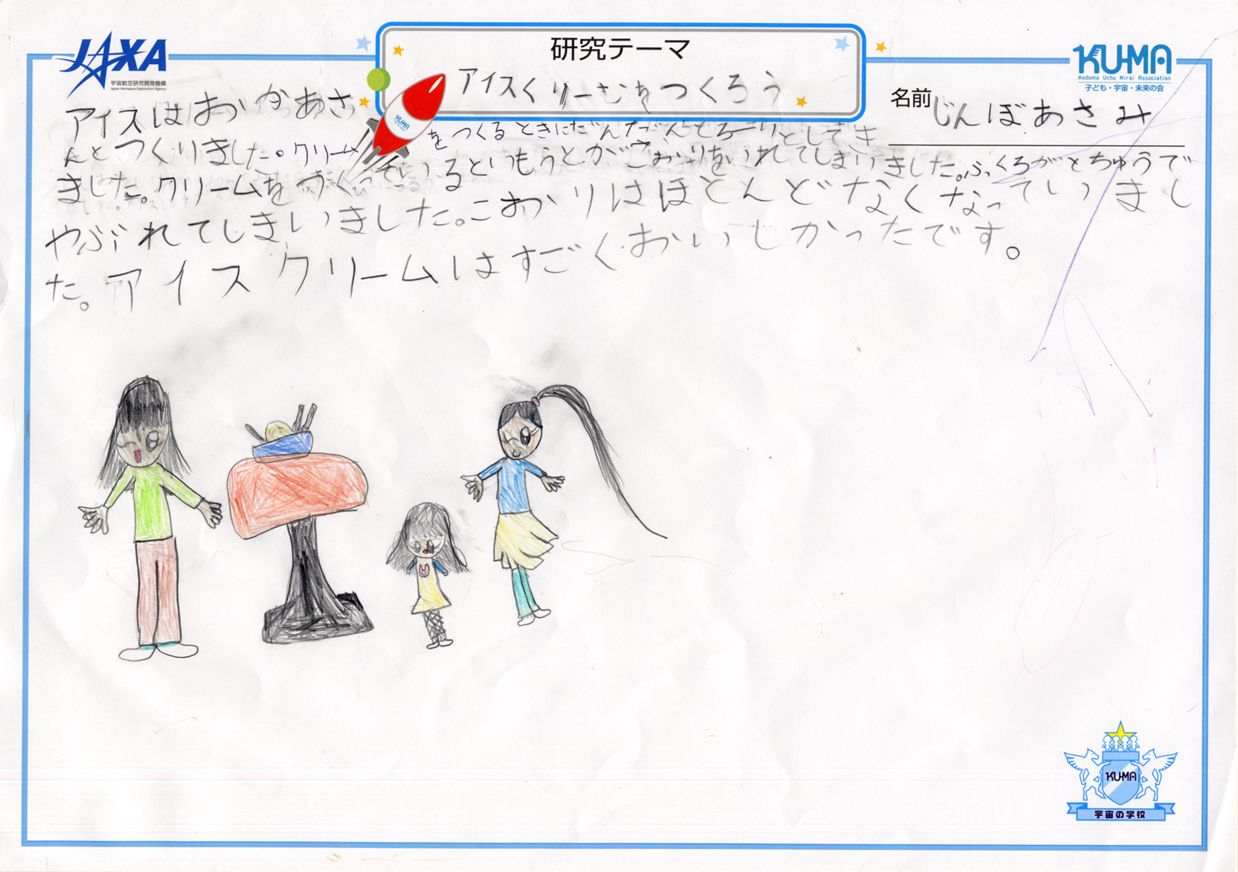 JAXA
宇宙航空研究開発機構
Japan Aerospace Exploration Agency
研究テーマ
アイスくりーむをつくろう
KUMA
Kodomo Uchu Mirai Association
子ども・宇宙・未来の会
名前 じんぼあさみ
アイスはおかあさ
んとつくりました。クリームをつくるときにだんだんとろーりとしてき
ました。クリームを ているといもうとががこおりをいれてしまいました。ふくろがとちゅうで
やぶれてしまいました。こおりはほとんどなくなっていまし
た。アイスクリームはすごくおいしかったです。
KUMA
KUMA
宇宙の学校